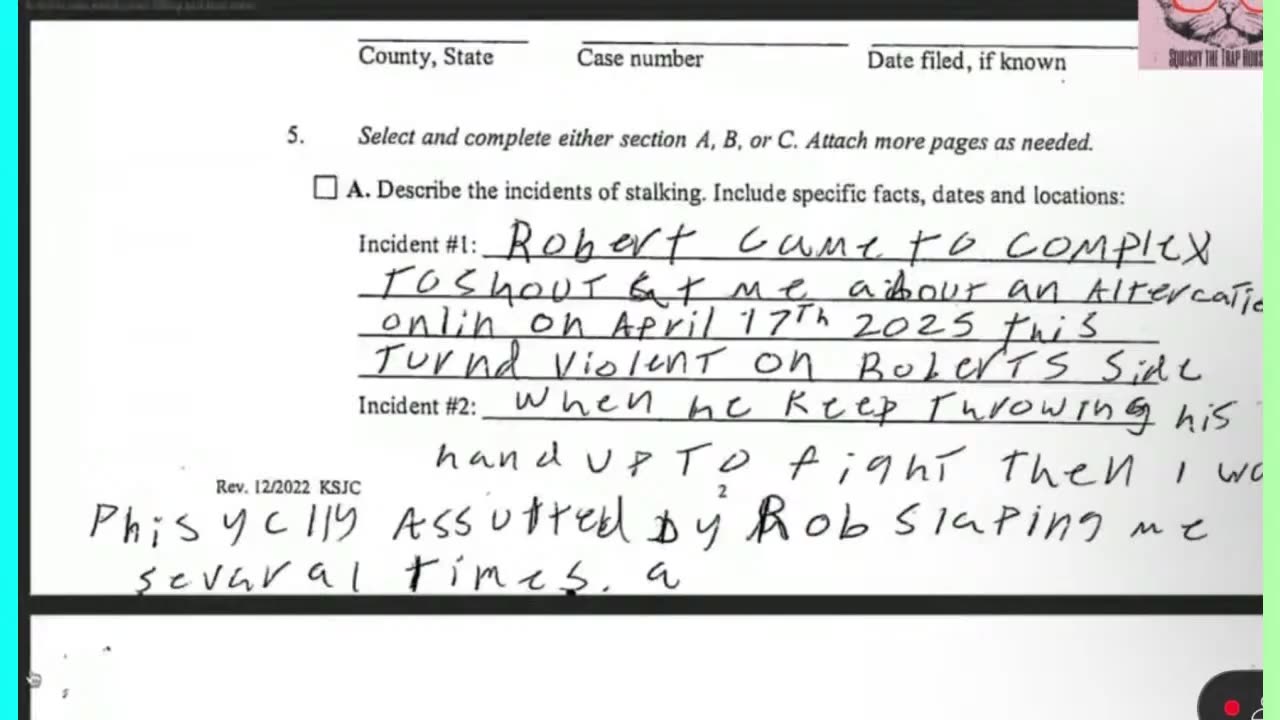 County, State Case number Date filed, if known
SQUISHY THE TRAP HOUS
5. Select and complete either section A, B, or C. Attach more pages as needed.
A. Describe the incidents of stalking. Include specific facts, dates and locations:
Incident #1: Robert came to complex
to shout at me about an Altercatio
onlin on April 17Th 2025 this
Turnd violent on Roberts Side
Incident #2: when he keep Throwing his
hand up To fight Then I wa
Rev. 12/2022 KSJC 2
Phisyclly Assulted by Rob slaping me
sevaral times. a